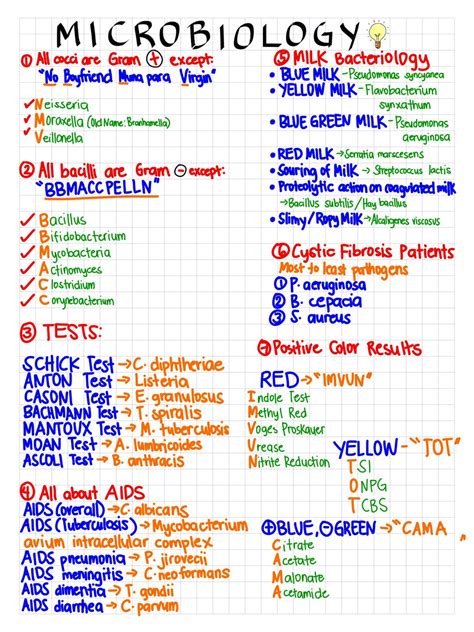 MICROBIOLOGY
① All cocci are Gram ⊕ except:
"No Boyfriend Muna para Virgin"
✓ Neisseria
✓ Moraxella (Old Name: Branhamella)
✓ Veillonella
② All bacilli are Gram ⊖ except:
"BBMACCPELLN"
✓ Bacillus
✓ Bifidobacterium
✓ Mycobacteria
✓ Actinomyces
✓ Clostridium
✓ Corynebacterium
③ TESTS:
SCHICK Test → C. diphtheriae
ANTON Test → Listeria
CASONI Test → E. granulosus
BACHMANN Test → T. spiralis
MANTOUX Test → M. tuberculosis
MOAN Test → A. lumbricoides
ASCOLI Test → B. anthracis
④ All about AIDS
AIDS (overall) → C. albicans
AIDS (Tuberculosis) → Mycobacterium
avium intracellular complex
AIDS pneumonia → P. jirovecii
AIDS meningitis → C. neoformans
AIDS dimentia → T. gondii
AIDS diarrhea → C. parvum
⑤ MILK Bacteriology
• BLUE MILK – Pseudomonas syncyanea
• YELLOW MILK – Flavobacterium
synxathum
• BLUE GREEN MILK – Pseudomonas
aeruginosa
• RED MILK → Serratia marscesens
• Souring of Milk → Streptococcus lactis
• Proteolytic action on coagulated milk
→ Bacillus subtilis / Hay bacillus
• Slimy / Ropy Milk → Alcaligenes viscosus
⑥ Cystic Fibrosis Patients
Most to least pathogens
① P. aeruginosa
② B. cepacia
③ S. aureus
⑦ Positive Color Results
RED → "IMVUN"
Indole Test
Methyl Red
Voges Proskauer
Urease
Nitrite Reduction
YELLOW – "TOT"
TSI
ONPG
TCBS
⊕ BLUE, ⊖ GREEN → "CAMA"
Citrate
Acetate
Malonate
Acetamide